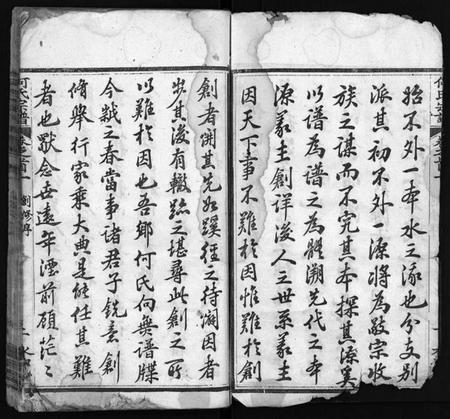 始不外一本水之源也分支別
派其初不外一源將為敬宗收
族之謀而不究其本探其源奚
以譜為譜之為體溯先代之本
源義主創詳後人之世系義主
因天下事不難於因惟難於創
創者開其先如蹊徑之待闢因者
步其後有轍跡之堪尋此創之所
以難於因也吾鄉何氏向無譜牒
今歲之春當事諸君子銳意創
脩舉行家乘大典是能任其難
者也獸念世遠年湮前顧茫々
何氏宗譜
卷之首